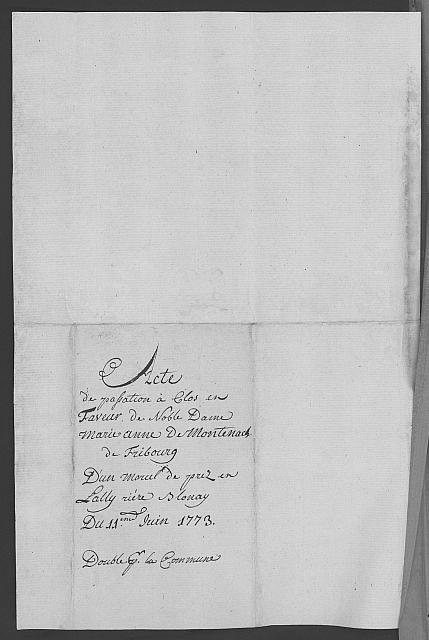 Acte
de passation à Clos en
Faveur de Noble Dame
Marie Anne De Montenach
de Fribourg
D'un morcel de prez en
Lally riére Blonay
Du 11eme Juin 1773.
Double pr. la Commune